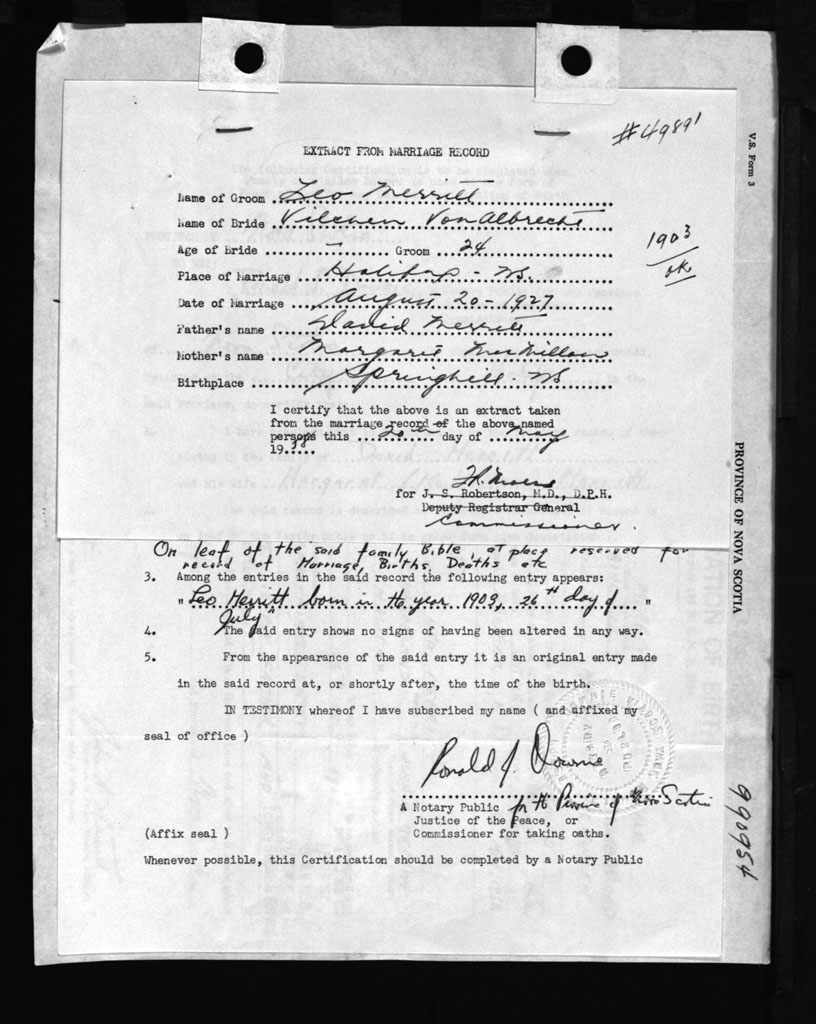 #49891
EXTRACT FROM MARRIAGE RECORD
Name of Groom Leo Merritt
Name of Bride Vilchen VonAlbrecht
1903
ok
Age of Bride - Groom 24
Place of Marriage Halifax - NS.
Date of Marriage August 20 - 1927
Father's name David Merritt
Mother's name Margaret MacMillan
Birthplace Springhill - NS
I certify that the above is an extract taken
from the marriage record of the above named
persons this 20th day of May
19
for J. S. Robertson, M.D., D.P.H.
Deputy Registrar General
Commissioner.
On leaf of the said family Bible, at place reserved for
record of Marriage, Births, Deaths etc
3. Among the entries in the said record the following entry appears:
" Leo Merritt born in the year 1903, 26th day of "
July
4. The said entry shows no signs of having been altered in any way.
5. From the appearance of the said entry it is an original entry made
in the said record at, or shortly after, the time of the birth.
IN TESTIMONY whereof I have subscribed my name ( and affixed my
seal of office )
Ronald J. Downie
A Notary Public for the Province of Nova Scotia
Justice of the Peace, or
(Affix seal ) Commissioner for taking oaths.
Whenever possible, this Certification should be completed by a Notary Public
V.S. Form 3
PROVINCE OF NOVA SCOTIA
990954